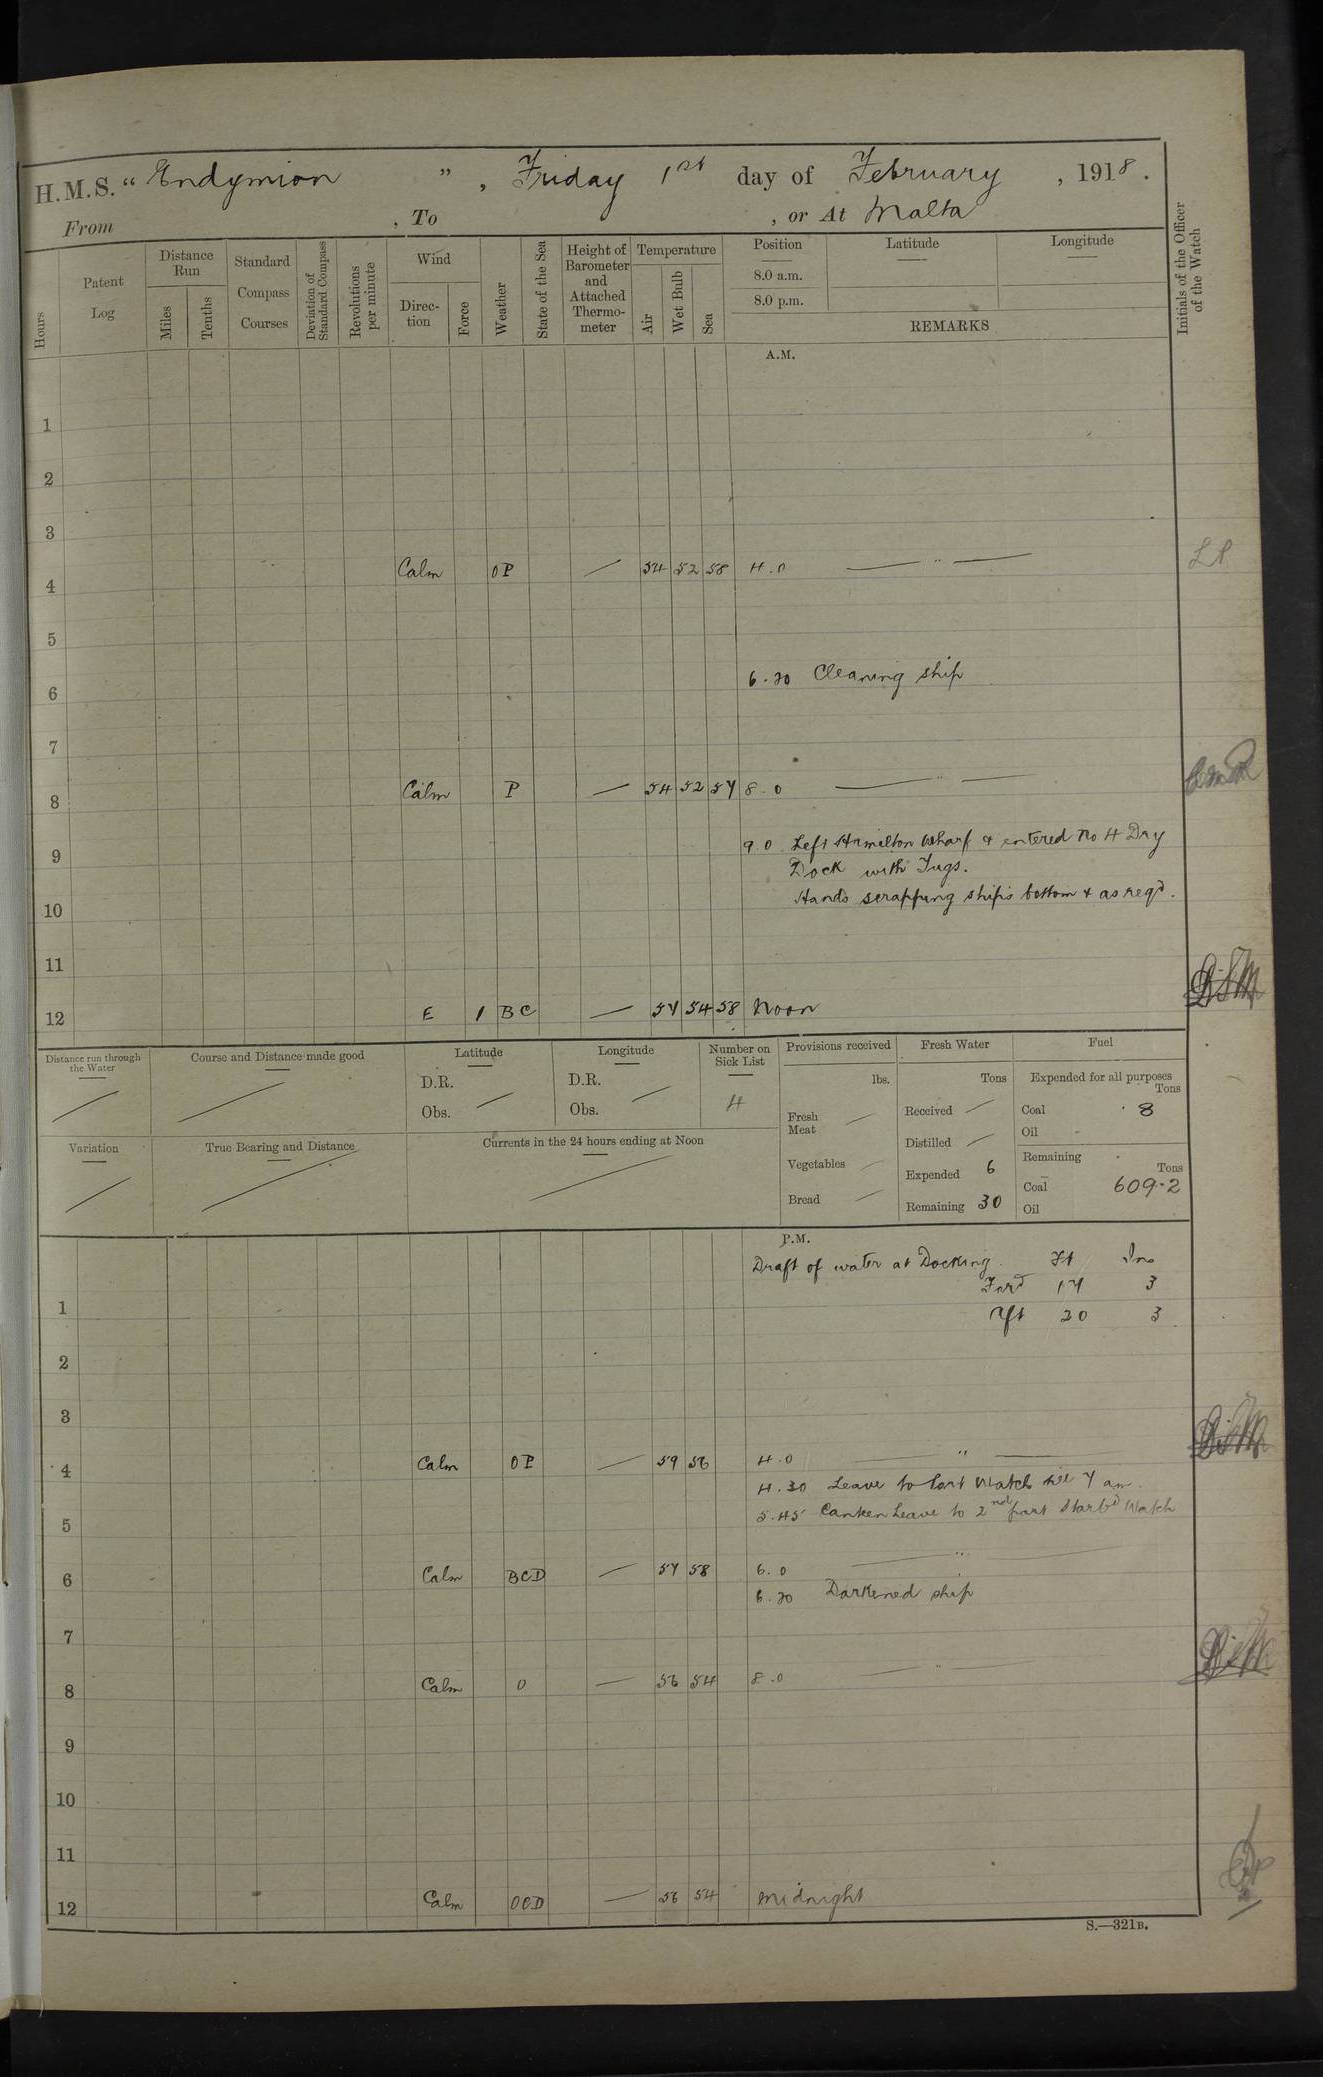 H.M.S. “ Endymion ” , Friday 1st day of February , 1918 .
From , To , or At Malta
Hours
Patent Log
Distance Run
Miles
Tenths
Standard Compass Courses
Deviation of Standard Compass
Revolutions per minute
Wind
Direc-tion
Force
Weather
State of the Sea
Height of Barometer and Attached Thermo-meter
Temperature
Air
Wet Bulb
Sea
Position Latitude Longitude
8.0 a.m.
8.0 p.m.
REMARKS
Initials of the Officer of the Watch
A.M.
1
2
3
4 Calm OP — 54 52 58 4.0 — " —
5
6 6.30 Cleaning ship
7
8 Calm P — 54 52 57 8.0 — " —
9 9.0 Left Hamilton Wharf & entered No 4 Dry
Dock with Tugs.
10 Hands scrapping ship's bottom & as reqd.
11
12 E 1 BC — 57 54 58 Noon
Distance run through the Water
Course and Distance made good
Latitude
D.R.
Obs.
Longitude
D.R.
Obs.
Number on Sick List
4
Variation
True Bearing and Distance
Currents in the 24 hours ending at Noon
Provisions received
lbs.
Fresh Meat
Vegetables
Bread
Fresh Water
Tons
Received
Distilled
Expended 6
Remaining 30
Fuel
Expended for all purposes
Tons
Coal 8
Oil
Remaining
Tons
Coal 609.2
Oil
P.M.
Draft of water at Docking. Ft Ins
1 Ford 17 3
Aft 20 3
2
3
4 Calm OP — 59 56 4.0 — " —
4.30 Leave to Port Watch till 7 am.
5 5.45 Canteen Leave to 2nd part Starbd Watch
6 Calm BCD — 57 58 6.0 — " —
6.30 Darkened ship
7
8 Calm O — 56 54 8.0 — " —
9
10
11
12 Calm OCD — 56 54 Midnight
S.—321B.